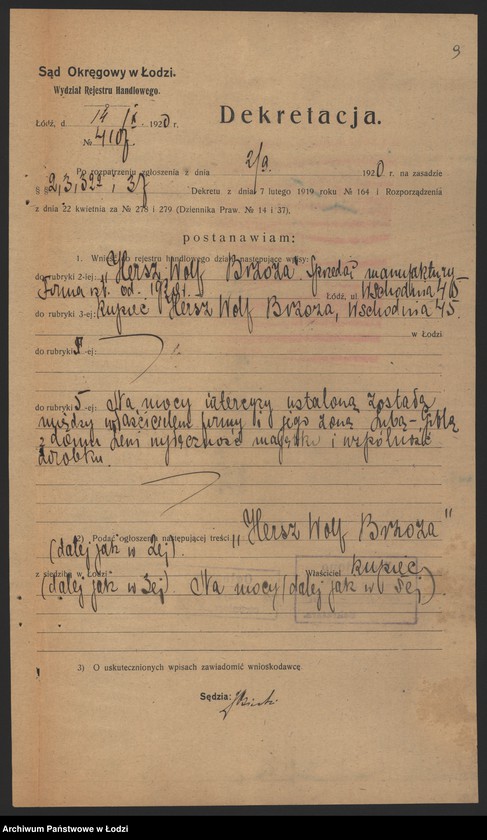 9
Sąd Okręgowy w Łodzi.
Wydział Rejestru Handlowego.
Dekretacja.
Łódź, d. 14 IX 1920 r.
№
Po rozpatrzeniu zgłoszenia z dnia 2/9. 1920 r. na zasadzie
§§ 2, 3, 32a i 37 Dekretu z dnia 7 lutego 1919 roku № 164 i Rozporządzenia
z dnia 22 kwietnia za № 278 i 279 (Dziennika Praw. № 14 i 37).
postanawiam:
1. Wnieść do rejestru handlowego dział następujące wpisy:
do rubryki 2-iej: „Hersz Wolf Brzoza". Sprzedaż manufaktury –
Firma od Łódź, ul Wschodnia 45
do rubryki 3-ej: Kupiec Hersz Wolf Brzoza, Wschodnia 45.
w Łodzi
do rubryki -ej:
do rubryki 5-ej: Na mocy intercyzy ustaloną została
między właścicielem firmy a jego żoną
z domu wyłączność majątku i wspólność
dorobku.
2) Podać ogłoszenie następującej treści: „Hersz Wolf Brzoza"
(dalej jak w 2ej).
z siedzibą w Łodzi Właściciel kupiec
(dalej jak w 3ej). Na mocy (dalej jak w 5ej).
3) O uskutecznionych wpisach zawiadomić wnioskodawcę.
Sędzia:
Archiwum Państwowe w Łodzi